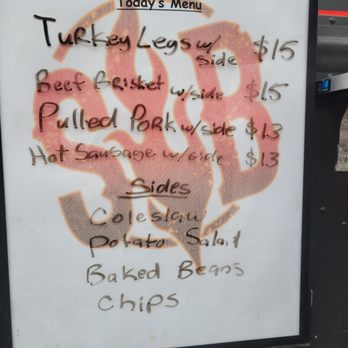 Today's Menu
Turkey Legs w/
side $15
Beef Brisket w/side $15
Pulled Pork w/side $13
Hot Sausage w/side $13
Sides
Coleslaw
Potato Salad
Baked Beans
Chips